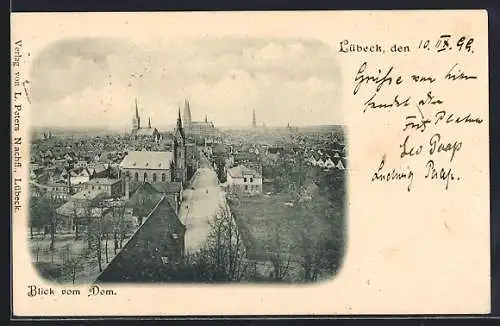 Lübeck, den 10. III. 99.
Grüsse von hier
sendet dir
Leo Paap
Ludwig Paap.
Verlag von L. Peters Nachfl., Lübeck.
Blick vom Dom.